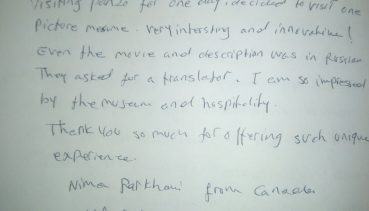 Visiting Penza for one day decided to visit one
Picture mesume. very intersting and innovative!
Even the movie and description was in Russian
They asked for a translator. I am so impressed
by the museum and hospitality.
Thank you so much for offering such unique
experience.
Nima from Canada